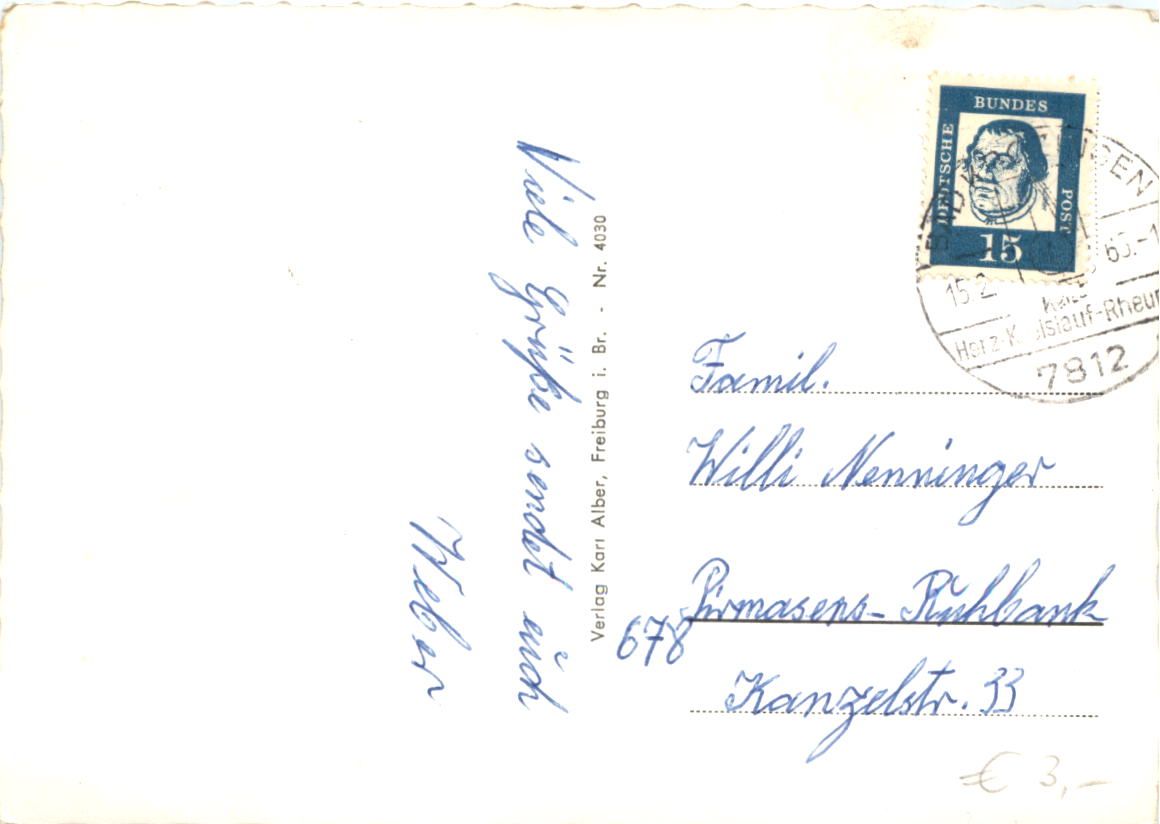 Viele Grüße sendet euch
Weber
Verlag Karl Alber, Freiburg i. Br. - Nr. 4030
DEUTSCHE
BUNDES
POST
15
BAD KROZINGEN
15.2.
65.-1
Herz-Kreislauf-Rheum
7812
Famil.
Willi Nenninger
678 Pirmasens-Ruhbank
Kanzelstr. 33
€ 3,-